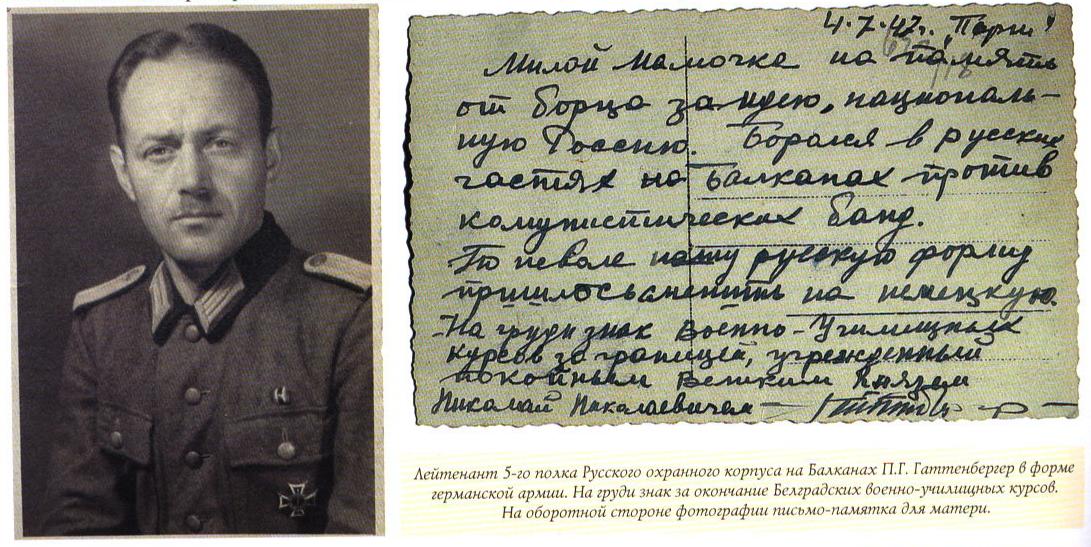 4.7.47г. „Париж"
Милой Мамочке на память
от борца за идею, националь-
ную Россию. Боролся в русских
частях на Балканах против
комунистических банд.
По неволе нашу русскую форму
пришлось сменить на немецкую.
На груди знак Военно-Училищных
курсов за границей, учрежденный
покойным Великим Князем
Николай Николаевичем —
Лейтенант 5-го полка Русского охранного корпуса на Балканах П.Г. Гаттенбергер в форме
германской армии. На груди знак за окончание Белградских военно-училищных курсов.
На оборотной стороне фотографии письмо-памятка для матери.